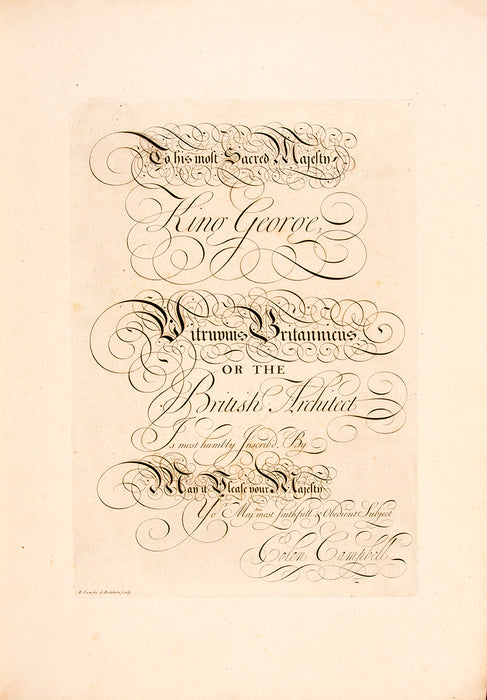 To his most Sacred Majesty
King George,
Vitruvius Britannicus
OR THE
British Architect
Is most humbly Inscrib'd. By
May it Please your Majesty
Yor. Majties. most faithfull & Obedient Subject
Colen Campbell